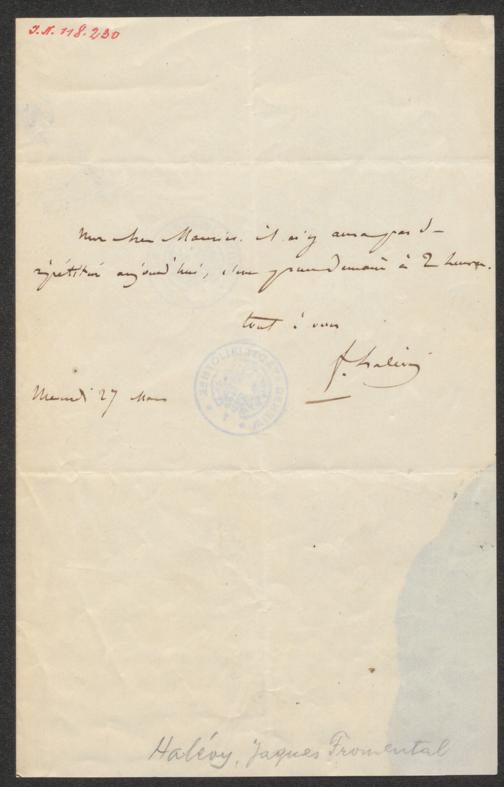 J.N. 118.230
Mon cher Maurice. il n'y aura pas d
répétition aujourd'hui, c'est pour demain à 2 heures.
tout à vous
f. halévy
Mercredi 27 Mars
Halévy, Jaques Fromental